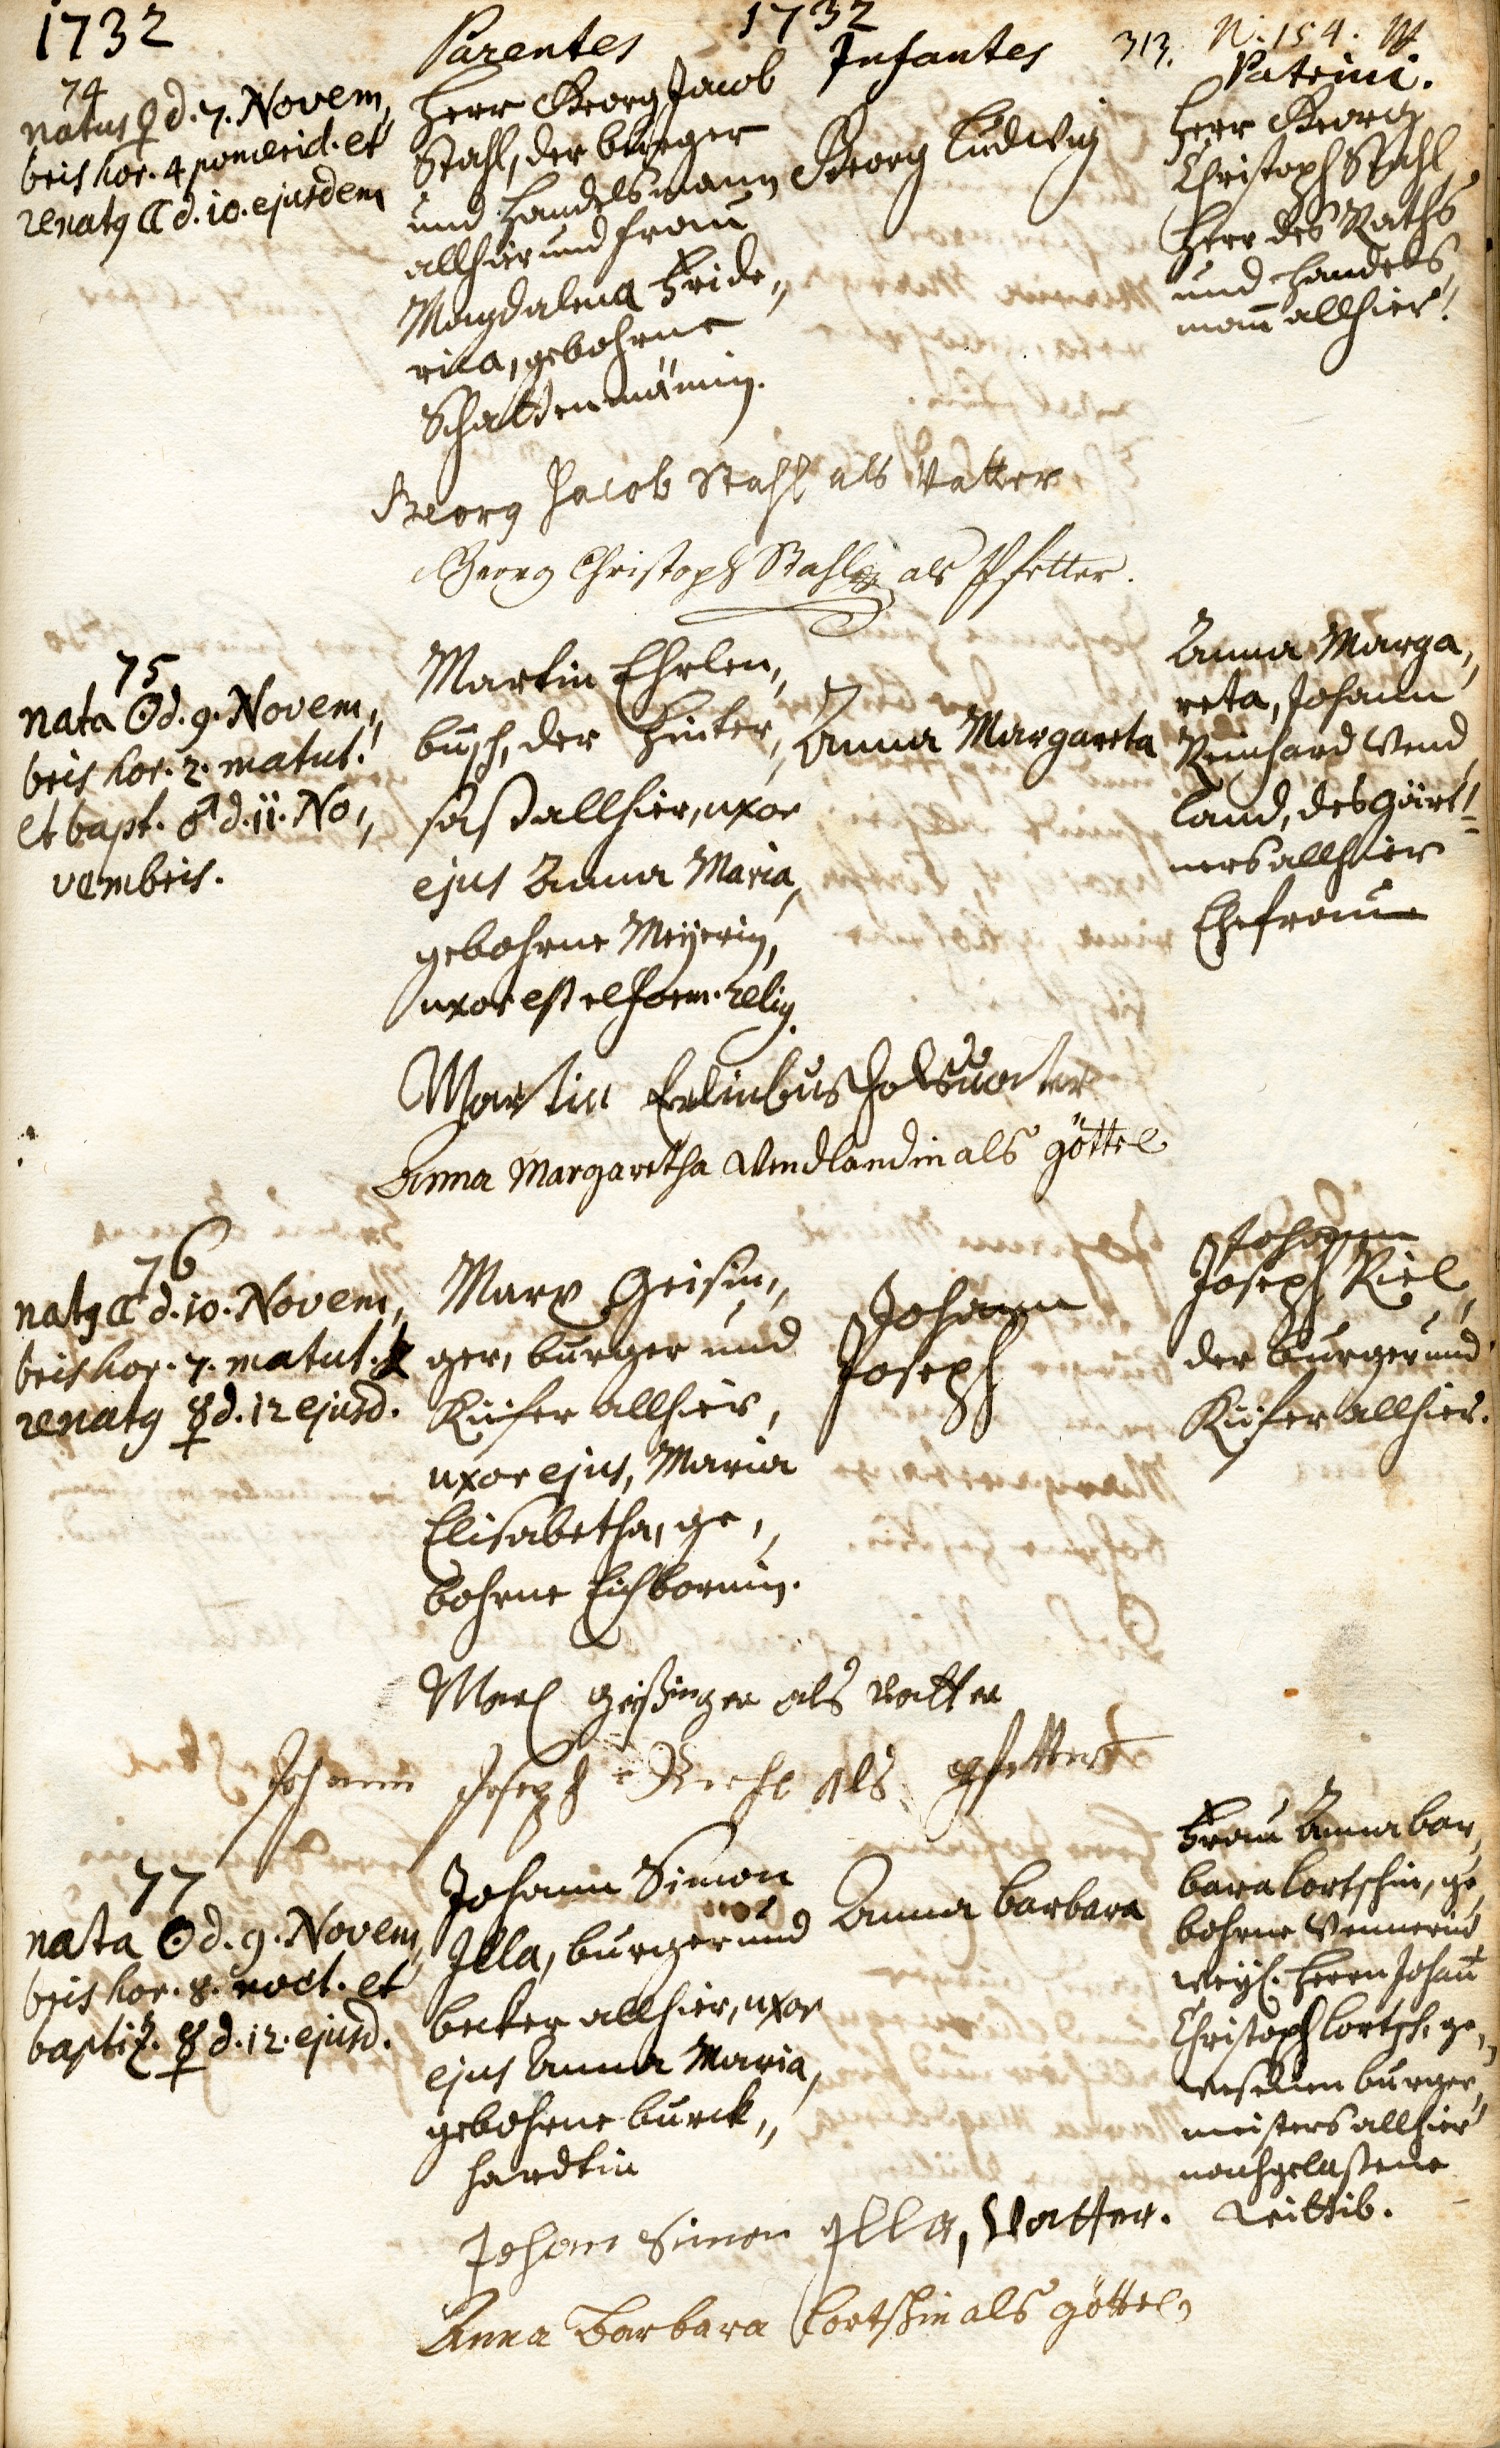 1732
1732
313. N. 154.
Parentes
Infantes
Patrini.
74
natus ♀ d. 7. Novem„
bris hor. 4 pomerid. et
renatq ☾ d. 10. ejusdem
Herr Georg Jacob
Stahl, der burger
und Handelsmann
allhier und frau
Magdalena Fride„
rica, gebohrne
Schattenmännin.
Georg Ludwig
Herr Georg
Christoph Stahl,
Herr des Raths
und Handels„
mañ allhier.
Georg Jacob Stahl als Vatter
Georg Christoph Stahl als Pfetter.
75
nata ☉ d. 9. Novem„
bris hor. 2. matut.
et bapt. ♂ d. 11. No„
vembris.
Martin Ehrlen„
busch, der Hinter„
saß allhier, uxor
ejus Anna Maria,
gebohrne Meyerin,
uxor est reform. relig.
Anna Margareta
Anna Marga„
reta, Johann
Reinhard Wend„
land, des Gärt„
ners allhier
Ehefrau
Martin Erlinbusch als vater
Anna Margaretha Wendlandin als göttel
76
natq ☾ d. 10. Novem„
bris hor. 7. matut. &
renatq ☿ d. 12 ejusd.
Marx Geisin„
ger, burger und
Küfer allhier,
uxor ejus, Maria
Elisabetha, ge„
bohrne Eichbornin.
Johann
Joseph
Johann
Joseph Riel,
der burger und
Küfer allhier.
Marx geißinger als vatter
Johann Joseph Riehl als pfetter
77
nata ☉ d. 9. Novem„
bris hor. 8. noct. et
baptiz. ☿ d. 12. ejusd.
Johann Simon
Illa, burger und
becker allhier, uxor
ejus Anna Maria,
gebohrne burck„
hardtin
Anna barbara
Frau Anna bar„
bara Cortschin, ge„
bohrne
weyl. Herrn Johañ
Christoph Cortsch, ge„
wesenen burger„
meisters allhier
nachgelaßene
Wittib.
Johan Simon Illa, Vatter.
Anna Barbara Cortschin als göttel